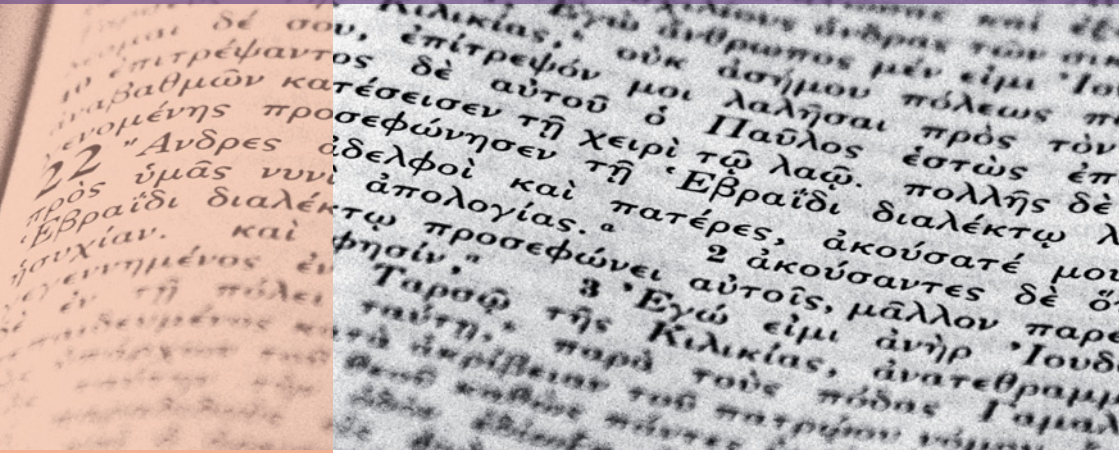 Ἐγὼ ἄνθρωπος μέν εἰμι Ἰου
Κιλικίας, οὐκ ἀσήμου πόλεως π
ομαι δέ σου, ἐπίτρεψόν μοι λαλῆσαι πρὸς τὸν
40 ἐπιτρέψαντος δὲ αὐτοῦ ὁ Παῦλος ἑστὼς ἐπ
ἀναβαθμῶν κατέσεισεν τῇ χειρὶ τῷ λαῷ. πολλῆς δὲ
γενομένης προσεφώνησεν τῇ Ἑβραΐδι διαλέκτῳ λ
22 Ἄνδρες ἀδελφοὶ καὶ πατέρες, ἀκούσατέ μου
πρὸς ὑμᾶς νυνὶ ἀπολογίας.ᵃ 2 ἀκούσαντες δὲ ὅ
Ἑβραΐδι διαλέκτῳ προσεφώνει αὐτοῖς, μᾶλλον παρ
ἡσυχίαν. καὶ φησίν,ᵃ 3 Ἐγώ εἰμι ἀνὴρ Ἰουδ
γεγεννημένος ἐν Ταρσῷ τῆς Κιλικίας, ἀνατεθραμμ
δὲ ἐν τῇ πόλει ταύτῃ, παρὰ τοὺς πόδας Γαμαλ
κατὰ ἀκρίβειαν τοῦ πατρῴου νόμου